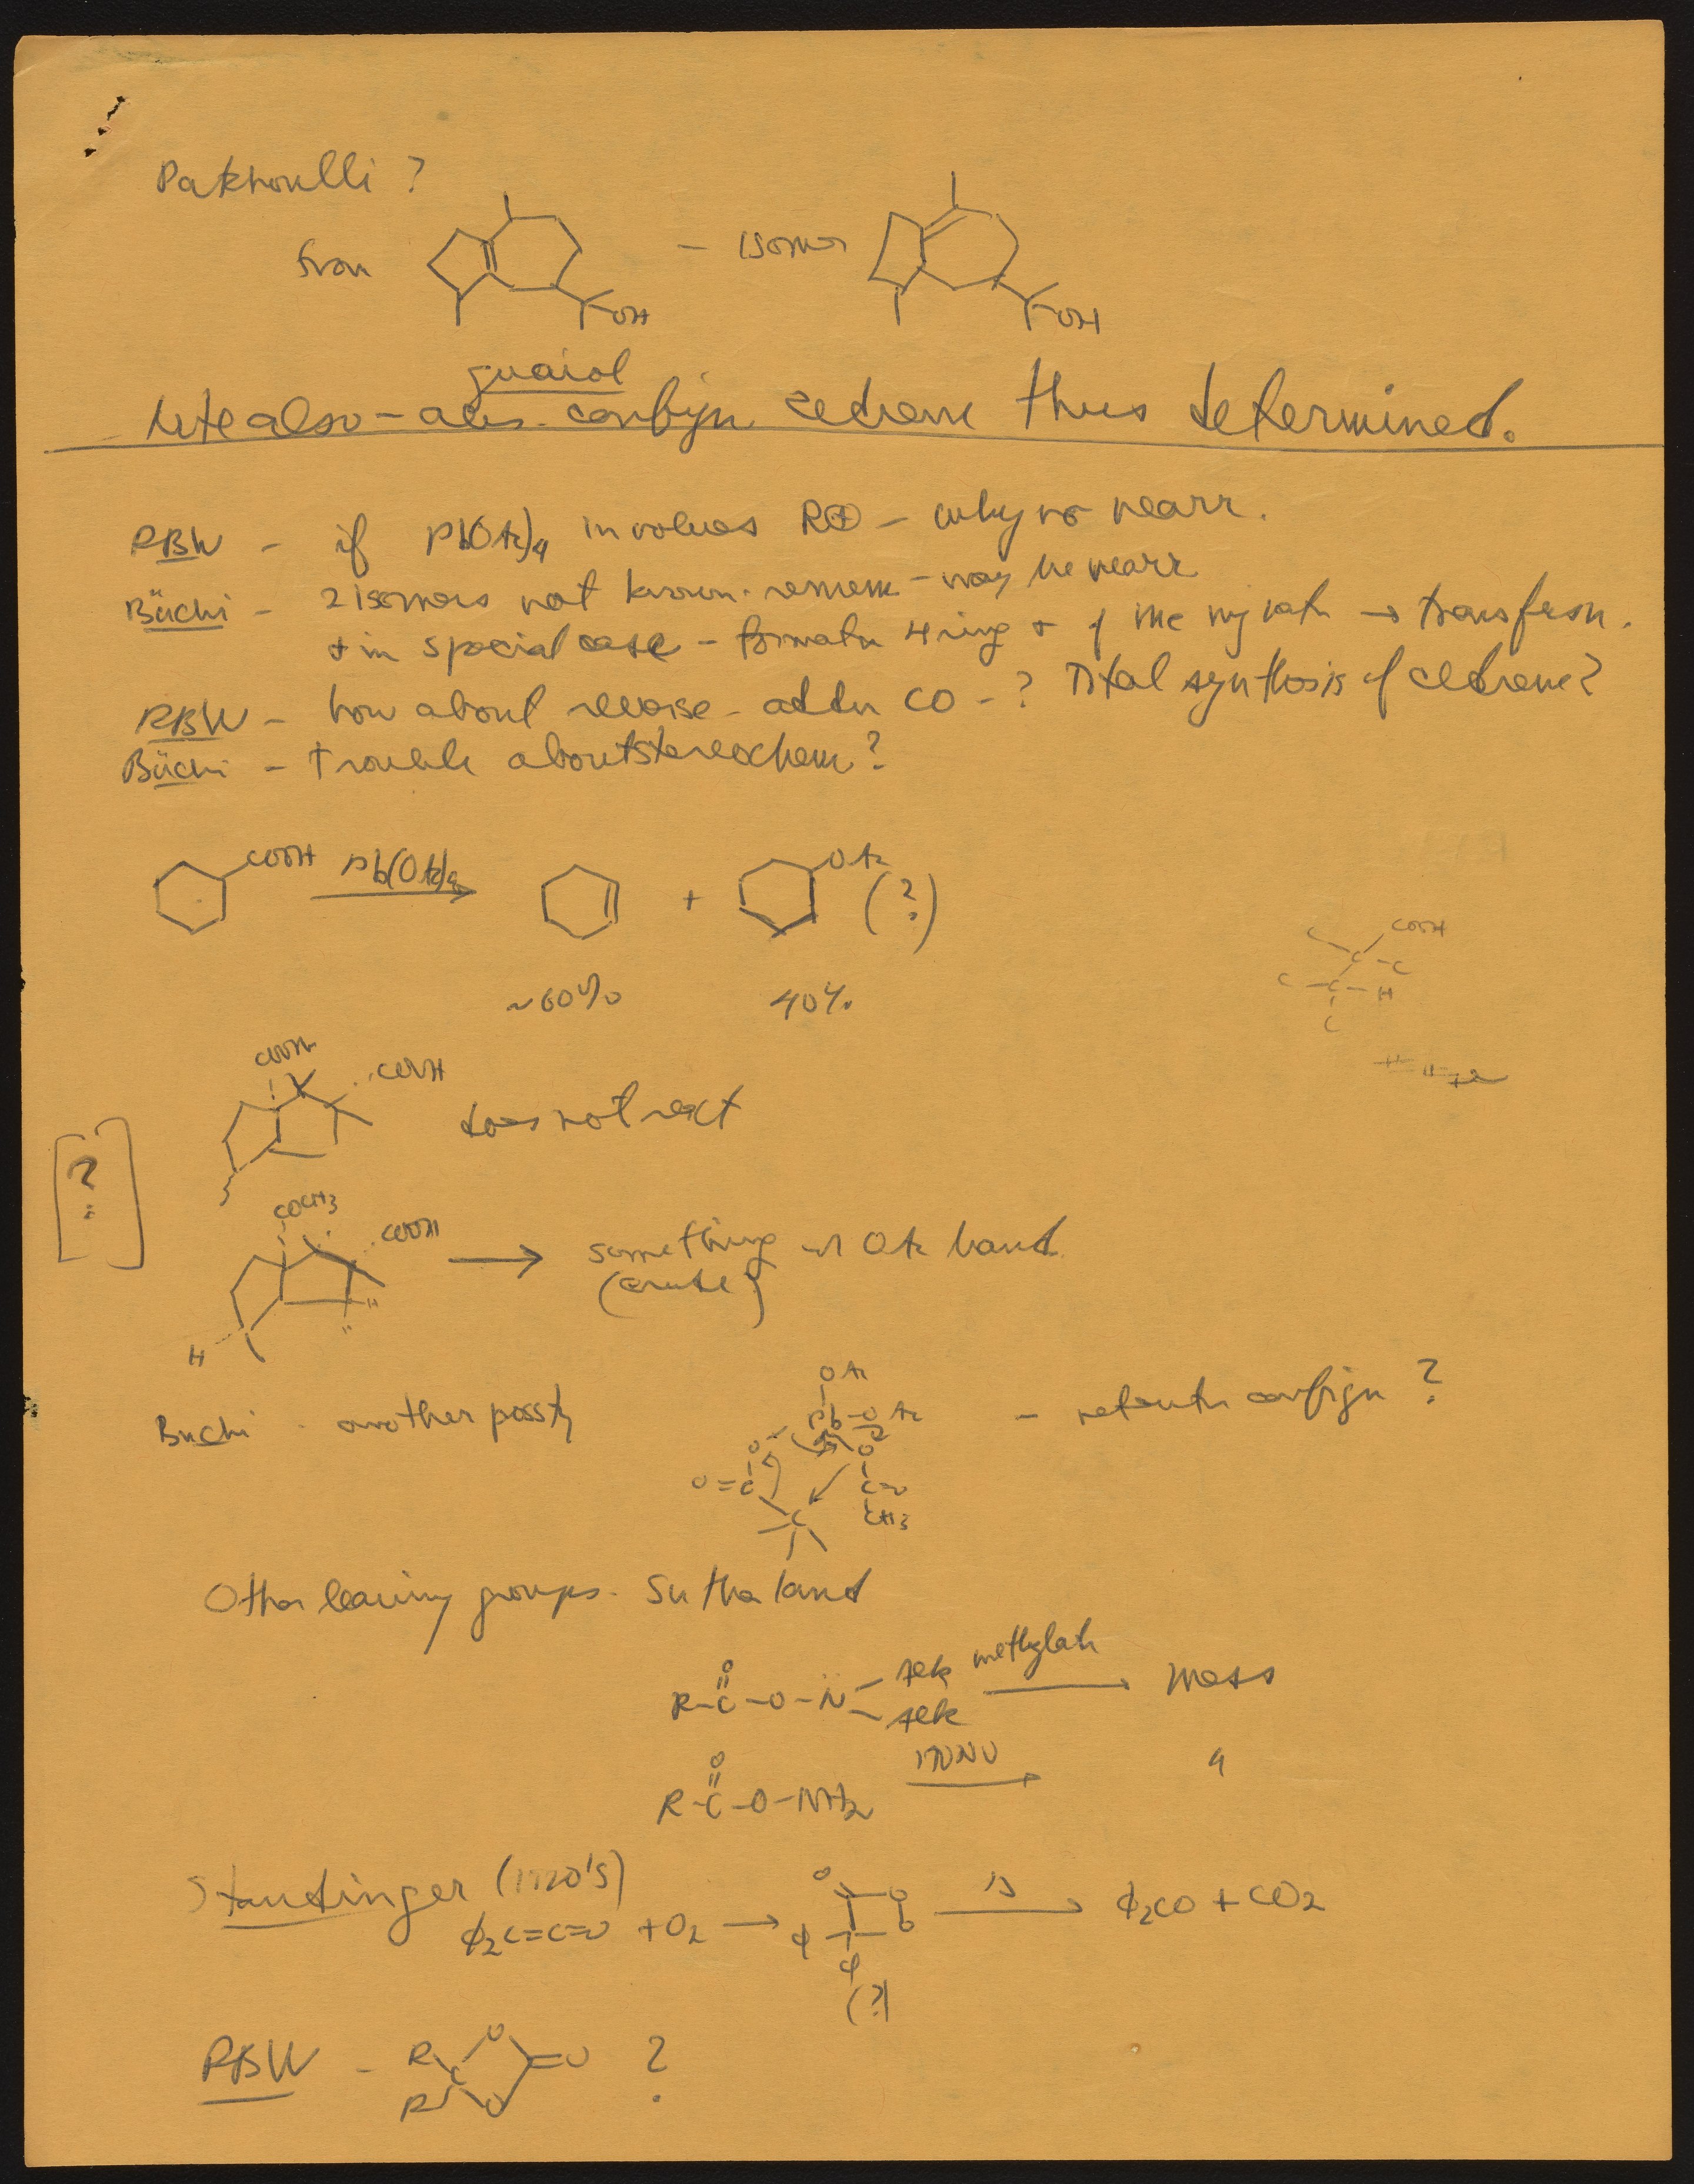 Patchoulli ?
from
— isomer
OH
OH
guaiol
Note also — abs. config. cedrene thus determined.
RBW — if Pb(OAc)4 involves R⊕ — why no rearr.
Büchi — 2 isomers not known — may be rearr
+ in special case — formatn 4 ring + of me migratn → transfmn.
RBW — how about reverse — addn CO — ? Total synthesis of cedrene?
Büchi — trouble about stereochem?
COOH
Pb(OAc)4
+
OAc
(?)
~60%
40%
COOH
C
C
C
C
H
C
C
COOH
COOH
does not react
[?]
COCH3
COOH
H
H
→ something w OAc band
(crude)
Büchi - another possty
OAc
Pb-OAc
O
O
O=C
C=O
CH3
C
— retentn config ?
Other leaving groups - Sutherland
R-C-O-N
O
Alk
Alk
methylatn
mess
R-C-O-NH2
O
HONO
"
Staudinger (1920's)
φ2C=C=O + O2 →
O
O
O
φ
φ
(?)
Δ
φ2CO + CO2
RBW — R
R
C
O
O
=O
?